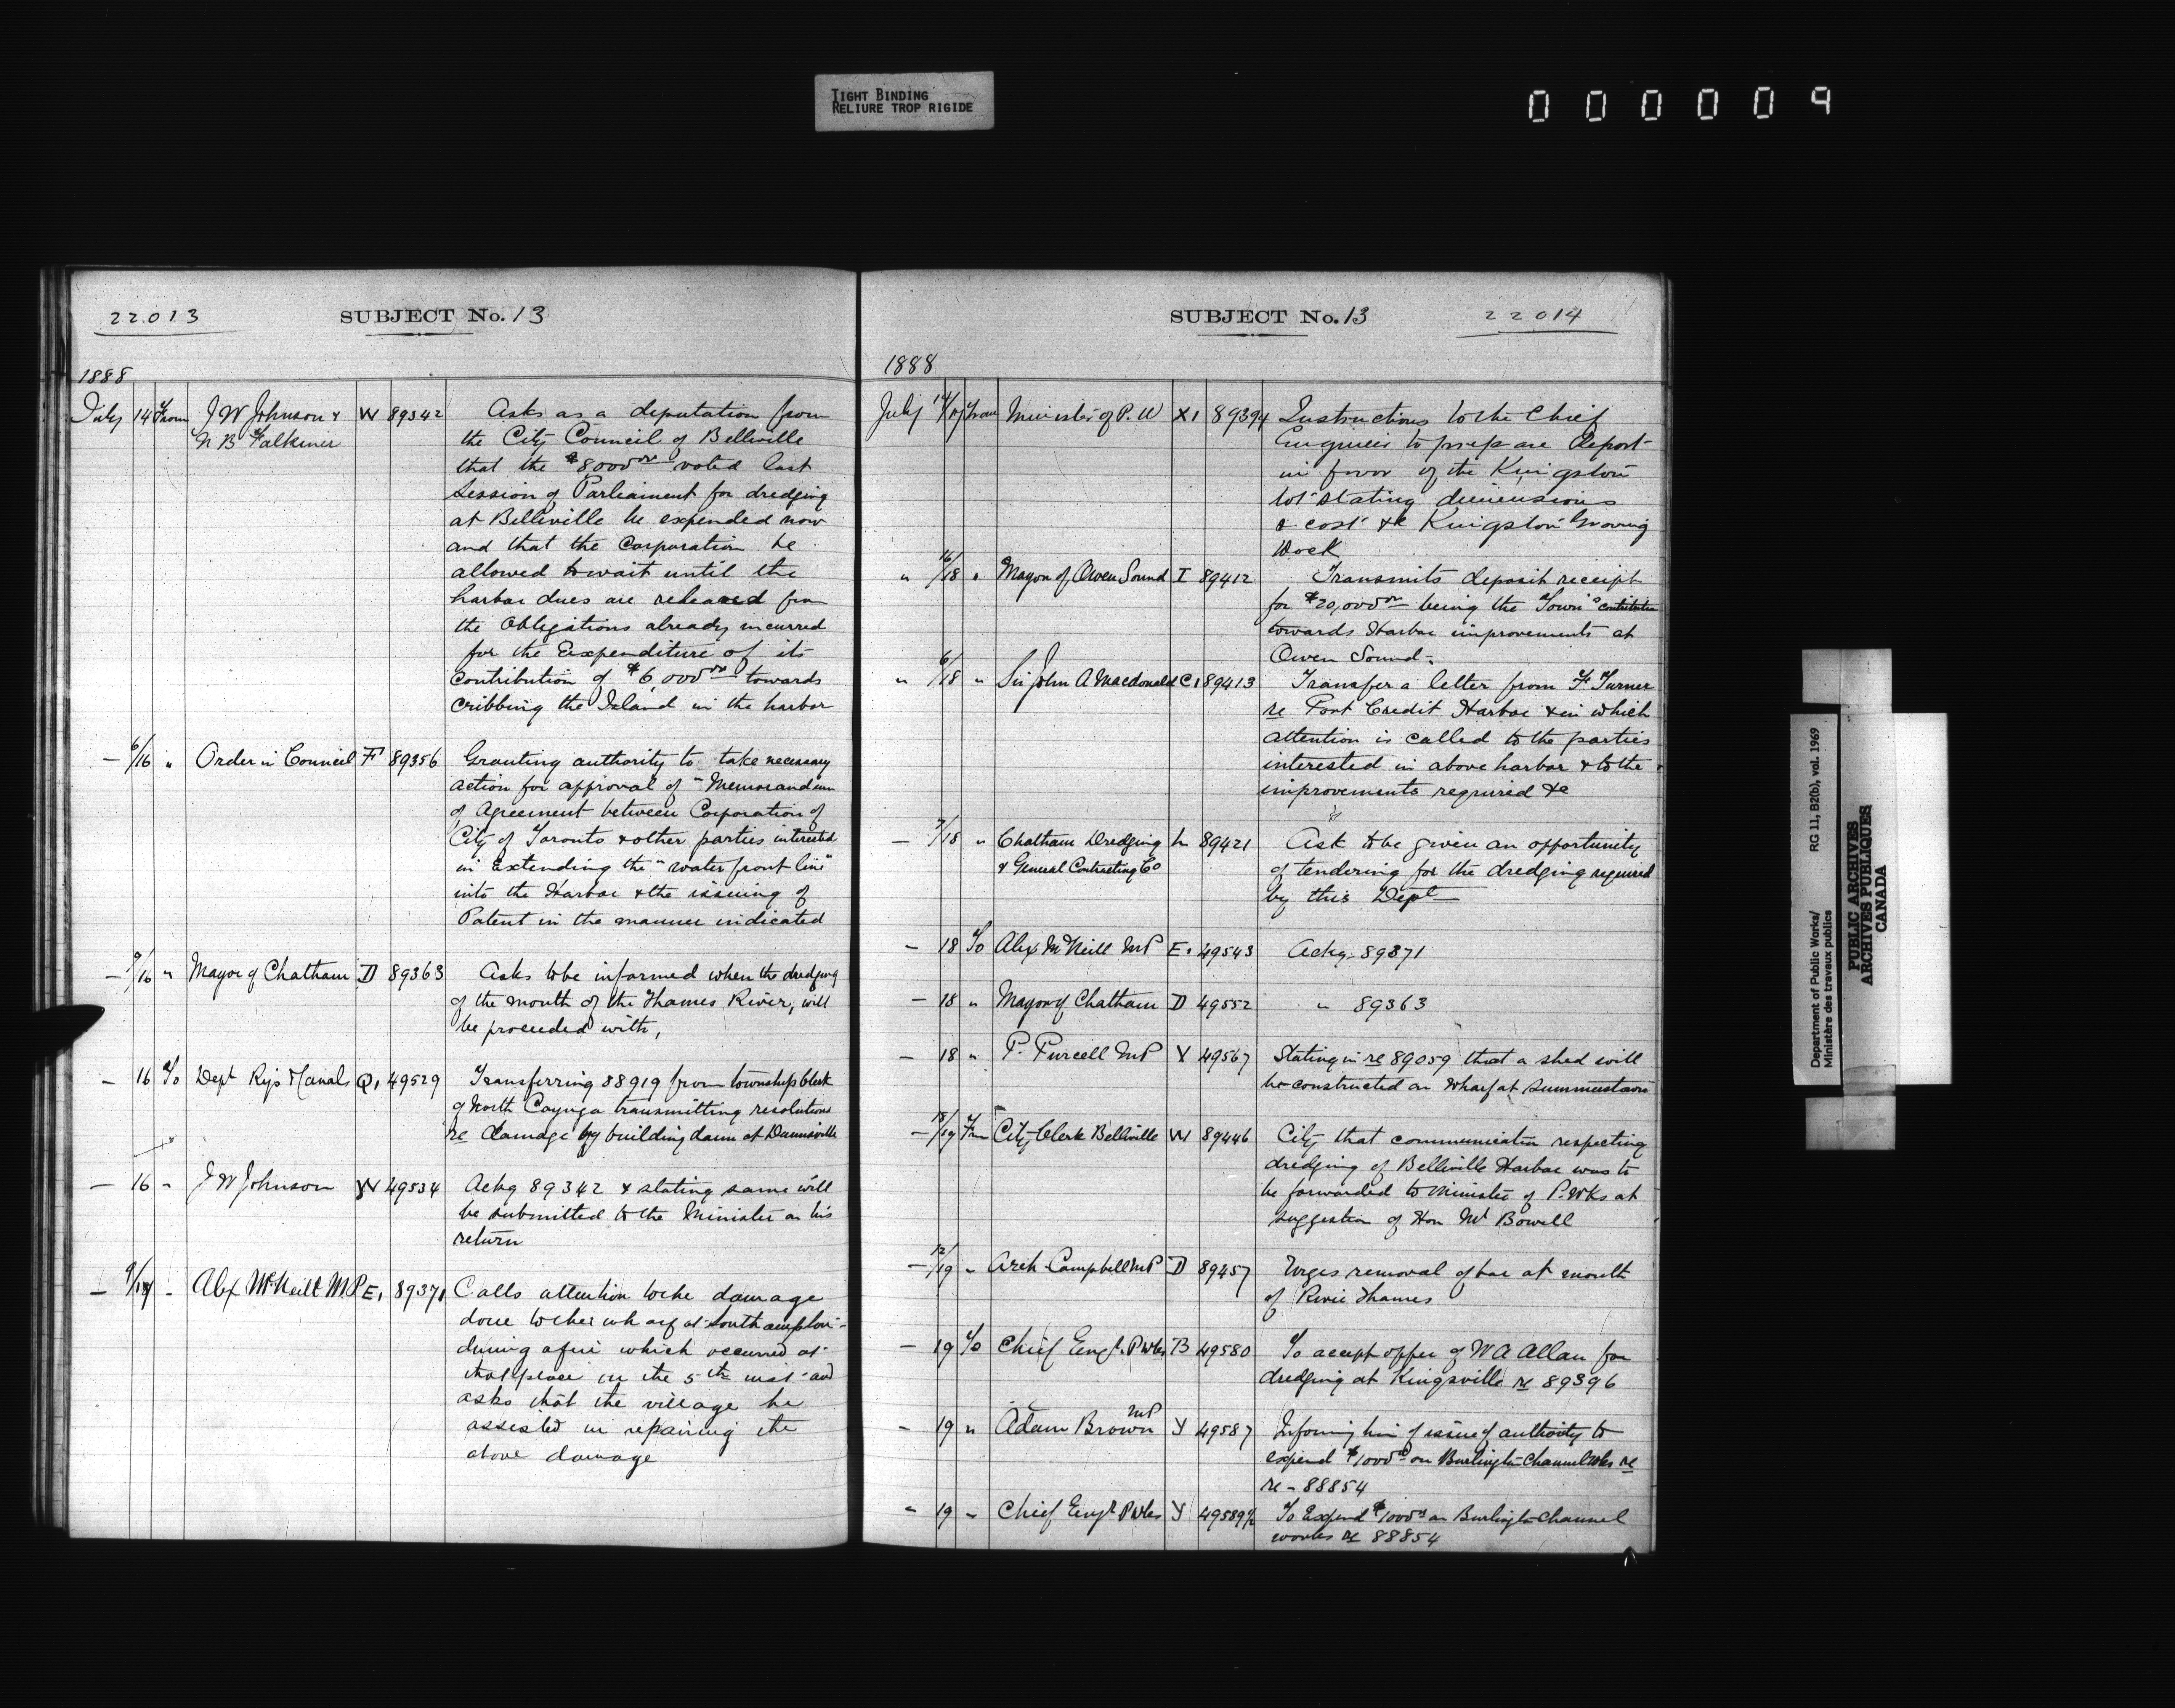 TIGHT BINDING
RELIURE TROP RIGIDE
000009
22013
SUBJECT No. 13
1888
July 14 From J W Johnson & W 89342 Asks as a deputation from
N B Falkiner the City Council of Belleville
that the $8000.00 voted last
Session of Parliament for dredging
at Belleville be expended now
and that the Corporation be
allowed to wait until the
harbor dues are released from
the Obligations already incurred
for the Expenditure of its
Contribution of $6,000.00 towards
Cribbing the Island in the harbor
— 6/16 " Order in Council F 89356 Granting authority to take necessary
action for approval of "Memorandum
of Agreement between Corporation of
City of Toronto & other parties interested
in Extending the "water front line"
into the Harbor & the issuing of
Patent in the manner indicated
— 9/16 " Mayor of Chatham D 89363 Asks to be informed when the dredging
of the mouth of the Thames River, will
be proceeded with,
— 16 To Dept Rys & Canals Q1 49529 Transferring 88919 from township Clerk
of North Cayuga transmitting resolutions
re damage by building dam at Dunnville
— 16 " J W Johnson W 49534 Ackg 89342 & stating same will
be submitted to the Minister on his
return
— 9/17 - Alex McNeill M.P E1 89371 Calls attention to the damage
done to the wharf at Southampton
during a fire which occurred at
that place on the 5th inst and
asks that the village be
assisted in repairing the
above damage
SUBJECT No. 13
22014
1888
July 14/17 From Minister of P. W X1 89394 Instructions to the Chief
Engineer to prepare Report
in favor of the Kingston
lot stating dimensions
& cost &c Kingston Graving
Dock
" 16/18 " Mayor of Owen Sound I 89412 Transmits deposit receipt
for $20,000.00 being the Town's contribution
towards Harbor improvements at
Owen Sound.
" 6/18 " Sir John A Macdonald C1 89413 Transfer a letter from F Turner
re Port Credit Harbor & in which
attention is called to the parties
interested in above harbor & to the
improvements required &c
— 7/18 " Chatham Dredging L 89421 Ask to be given an opportunity
& General Contracting Co of tendering for the dredging required
by this Dept
— 18 To Alex McNeill MP E1 49543 Ackg 89371
— 18 " Mayor of Chatham D 49552 " 89363
— 18 " P. Purcell MP Y 49567 Stating in re 89059 that a shed will
be constructed on Wharf at Summerstown
— 18/19 From City Clerk Belleville W 89446 City that communication respecting
dredging of Belleville Harbor was to
be forwarded to Minister of P. Wks at
suggestion of Hon Mr Bowell
— 12/19 " Arch Campbell MP D 89457 Urges removal of bar at mouth
of River Thames
— 19 To Chief Engr. P Wks B 49580 To accept offer of W A Allan for
dredging at Kingsville re 89396
— 19 " Adam Brown MP Y 49587 Informing him of issue of authority to
expend $1000.00 on Burlington Channel Wks re
re - 88854
" 19 " Chief Engr P Wks Y 49589½ To Expend $1000.00 on Burlington Channel
works re 88854
Department of Public Works/ RG 11, B2(b), vol. 1969
Ministère des travaux publics
PUBLIC ARCHIVES
ARCHIVES PUBLIQUES
CANADA